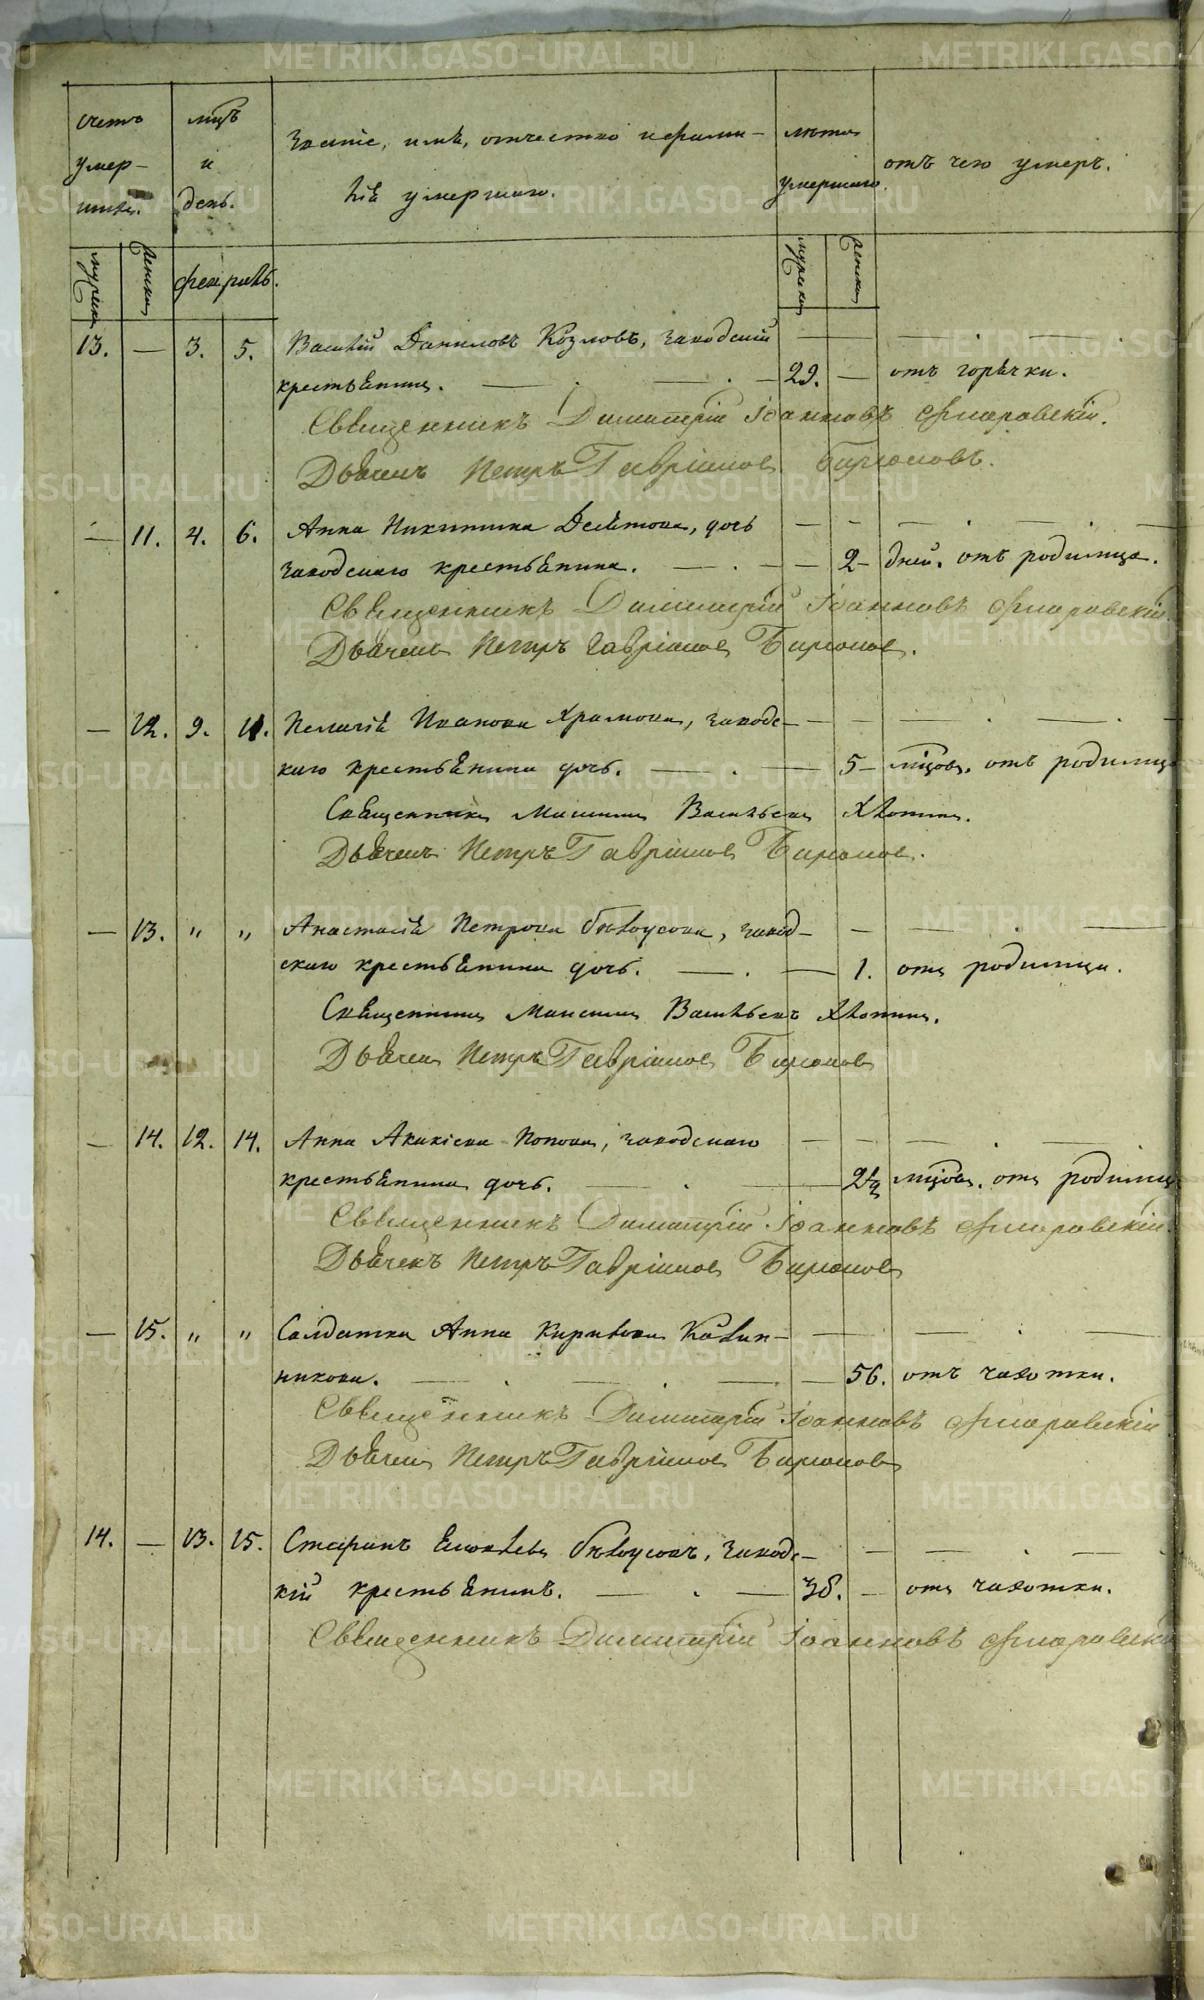 счетъ мцъ Званіе, имя, отчество и фами- лѣта отъ чего умеръ.
умер- и лія умершаго. умершаго.
шихъ. день.
мужска женска февраль. мужска женска
13. — 3. 5. Василій Даниловъ Козловъ, заводскій
крестьянинъ. 29. — отъ горячки.
Священникъ Димитрій Іоанновъ
Дьячекъ Петръ Гавріиловъ Бирюковъ.
— 11. 4. 6. Анна Никитина дочь
заводскаго крестьянина. — 2 дней. отъ родимца.
Священникъ Димитрій Іоанновъ
Дьячекъ Петръ Гавріиловъ Бирюковъ.
— 12. 9. 11. Пелагія Иванова Храмова, заводс-
каго крестьянина дочь. — 5 мцовъ. отъ родимца
Священникъ Максимъ Васильевъ Хлопинъ.
Дьячекъ Петръ Гавріиловъ Бирюковъ.
— 13. " " Анастасія Петрова Бѣлоусова, завод-
скаго крестьянина дочь. — 1. отъ родимца.
Священникъ Максимъ Васильевъ Хлопинъ.
Дьячекъ Петръ Гавріиловъ Бирюковъ
— 14. 12. 14. Анна Акакіева Попова, заводскаго
крестьянина дочь. мцовъ. отъ родимц
Священникъ Димитрій Іоанновъ
Дьячекъ Петръ Гавріиловъ Бирюковъ
— 15. " " Солдатка Анна Кирилова
никова. — 56. отъ чахотки.
Священникъ Димитрій Іоанновъ
Дьячекъ Петръ Гавріиловъ Бирюковъ
14. — 13. 15. Бѣлоусовъ, заводс-
кій крестьянинъ. 38. — отъ чахотки.
Священникъ Димитрій Іоанновъ
METRIKI.GASO-URAL.RU